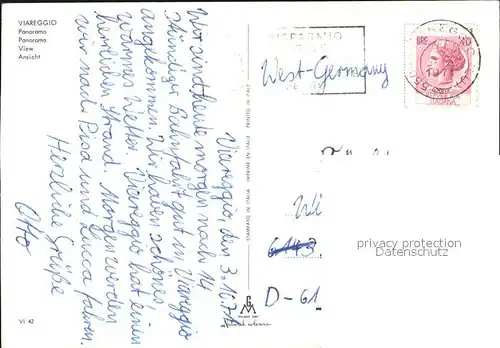 VIAREGGIO
Panorama
Panorama
View
Ansicht
Viareggio, den 3.10.71
Wir sind heute morgen nach 14
stündiger Bahnfahrt gut in Viareggio
angekommen. Wir haben schönes
warmes Wetter. Viareggio hat einen
herrlichen Strand. Morgen werden
wir nach Pisa und Lucca fahren.
Herzliche Grüße
Otto
VI 42
STAMPATO IN ITALIA IMPRIMÉ EN ITALIE PRINTED IN ITALY
RISPARMIO
West-Germany
LIRE
ITALIANA
privacy protection
Datenschutz
D-61